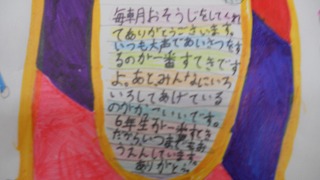 毎朝月おそうじをしてくれ
てありがとうございます。
いつも大声であいさつをす
るのが一番すてきです
よ。あと、みんなにいろ
いろしてあげている
のがかっこいいです。
6年生が一番すてき
だからいつまでもお
うえんしています。
ありがとう